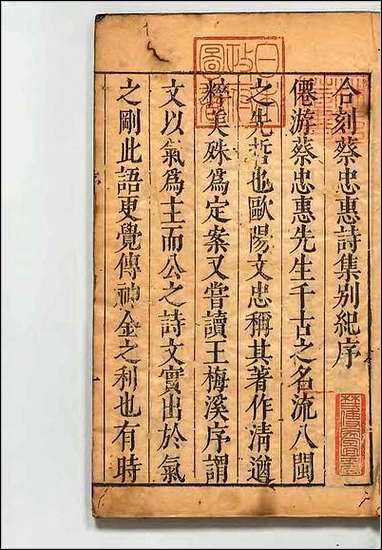 合刻蔡忠惠詩集別紀序
僊游蔡忠惠先生千古之名流八閩
之先哲也歐陽文忠稱其著作清遒
粹美殊為定案又嘗讀王梅溪序謂
文以氣為主而公之詩文實出於氣
之剛此語更覺傳神金之利也有時